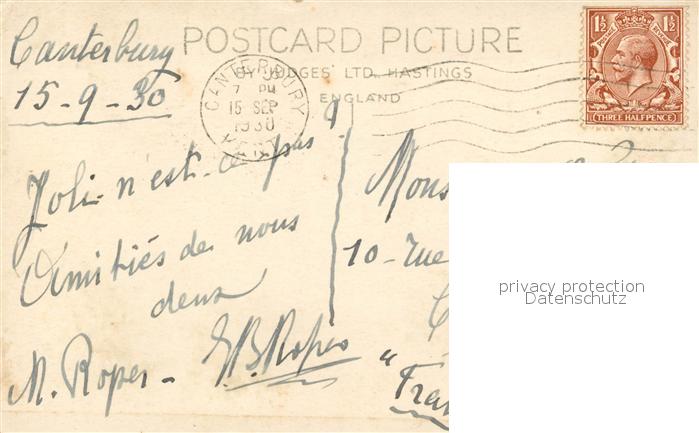 Canterbury
15-9-30
POSTCARD PICTURE
BY JUDGES' LTD. HASTINGS
ENGLAND
CANTERBURY
7 PM
15 SEP
1930
KENT
1½ 1½
POSTAGE REVENUE
THREE HALFPENCE
Joli n'est-ce pas?
Amitiés de nous
deux
M. Roper - G.B. Roper
Mons
10 - rue
"Fra
privacy protection
Datenschutz